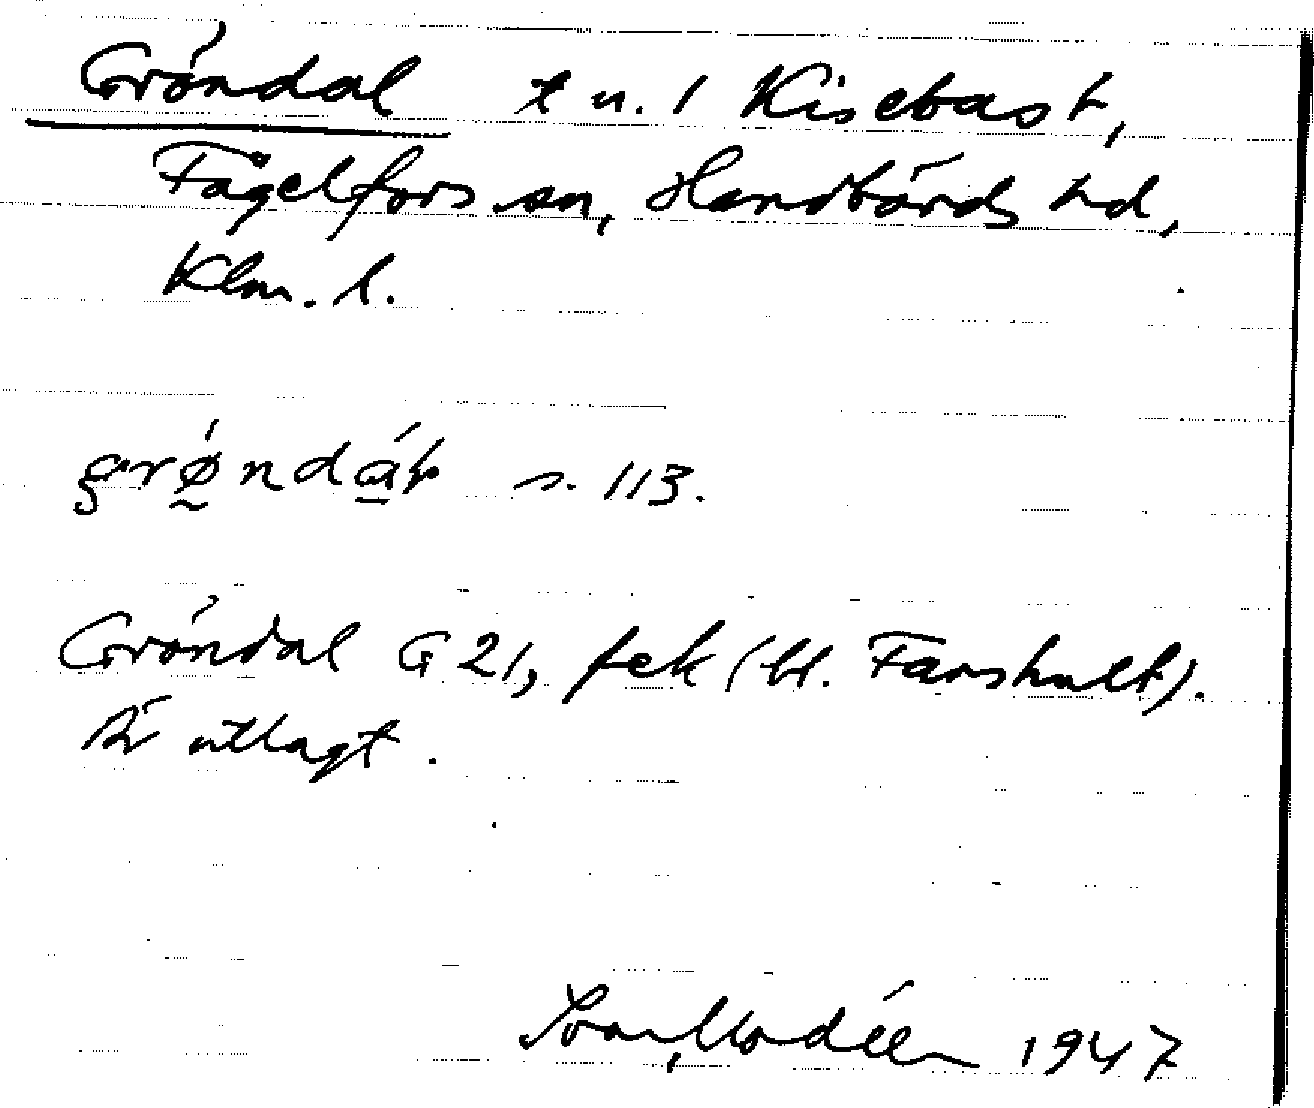 Gröndal t u. 1 Kisebast,
Fågelfors sn, Handbörds hd,
Klm. l.
grǿndáł s. 113.
Gröndal G 21, fek (bl. Farshult).
Är utlagt.
Ivar Modéer 1947